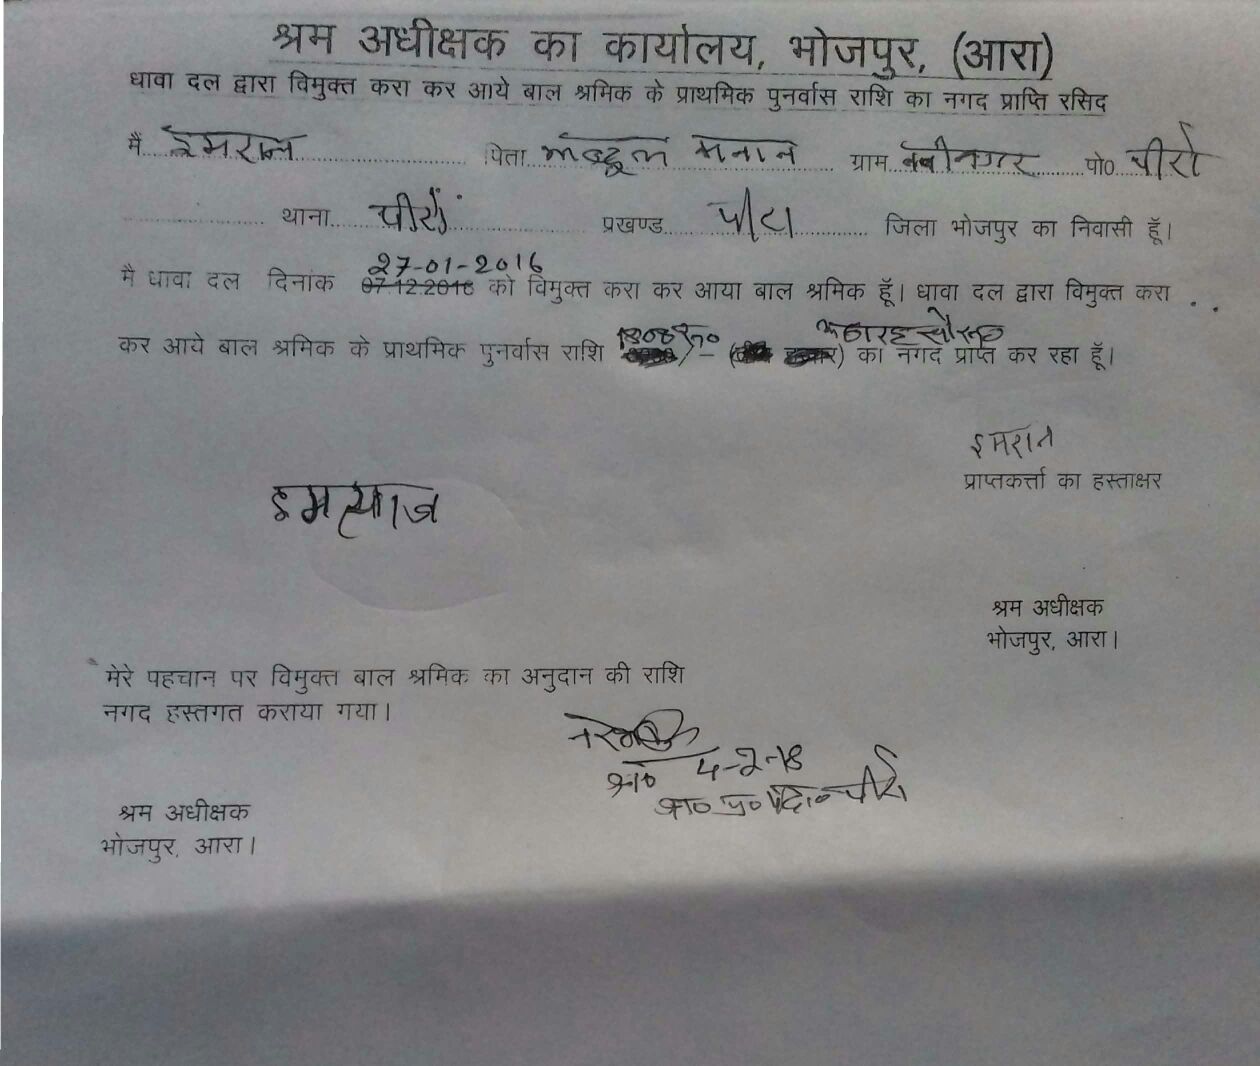 श्रम अधीक्षक का कार्यालय, भोजपुर, (आरा)
धावा दल द्वारा विमुक्त करा कर आये बाल श्रमिक के प्राथमिक पुनर्वास राशि का नगद प्राप्ति रसिद
मैं इमरान पिता अब्दुल मनान ग्राम नबीनगर पो० पीरो
थाना पीरो प्रखण्ड पीरो जिला भोजपुर का निवासी हूँ।
27-01-2016
मै धावा दल दिनांक 07.12.2016 को विमुक्त करा कर आया बाल श्रमिक हूँ। धावा दल द्वारा विमुक्त करा
कर आये बाल श्रमिक के प्राथमिक पुनर्वास राशि 1800 रू० (अठारह सौ रू०) का नगद प्राप्त कर रहा हूँ।
इमरान
प्राप्तकर्त्ता का हस्ताक्षर
इमत्याज
श्रम अधीक्षक
भोजपुर, आरा।
मेरे पहचान पर विमुक्त बाल श्रमिक का अनुदान की राशि
नगद हस्तगत कराया गया।
4-2-18
श्र० प्र० पदा० पीरो
श्रम अधीक्षक
भोजपुर, आरा।